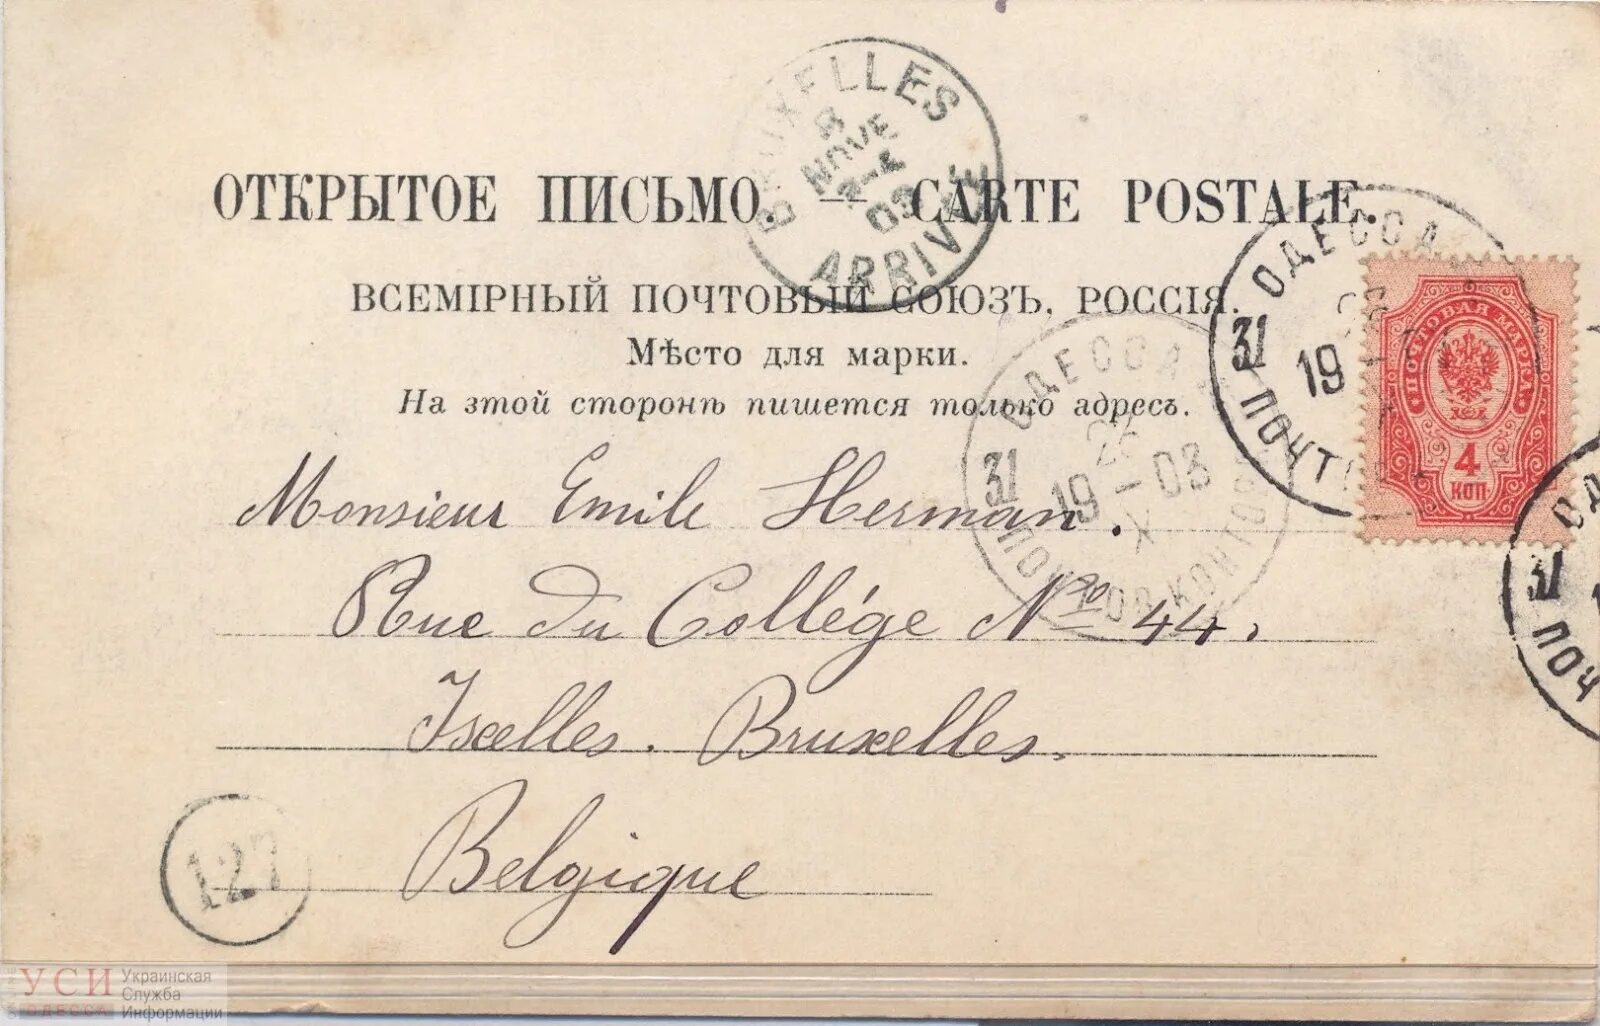 BRUXELLES
8
NOVE
03
ARRIVÉE
ОТКРЫТОЕ ПИСЬМО. — CARTE POSTALE.
ВСЕМІРНЫЙ ПОЧТОВЫЙ СОЮЗЪ, РОССІЯ.
Мѣсто для марки.
На этой сторонѣ пишется только адресъ.
ОДЕССА
31
19
ПОЧТОВ
ПОЧТОВАЯ МАРКА
4
КОП
ОДЕССА
31
19-03
X
ПОЧТОВ. КОНТОРА
Monsieur Emile Herman.
Rue du Collége No 44,
Ixelles. Bruxelles.
Belgique
31
ПОЧ
127
УСИ Украинская
Служба
ОДЕССА Информации